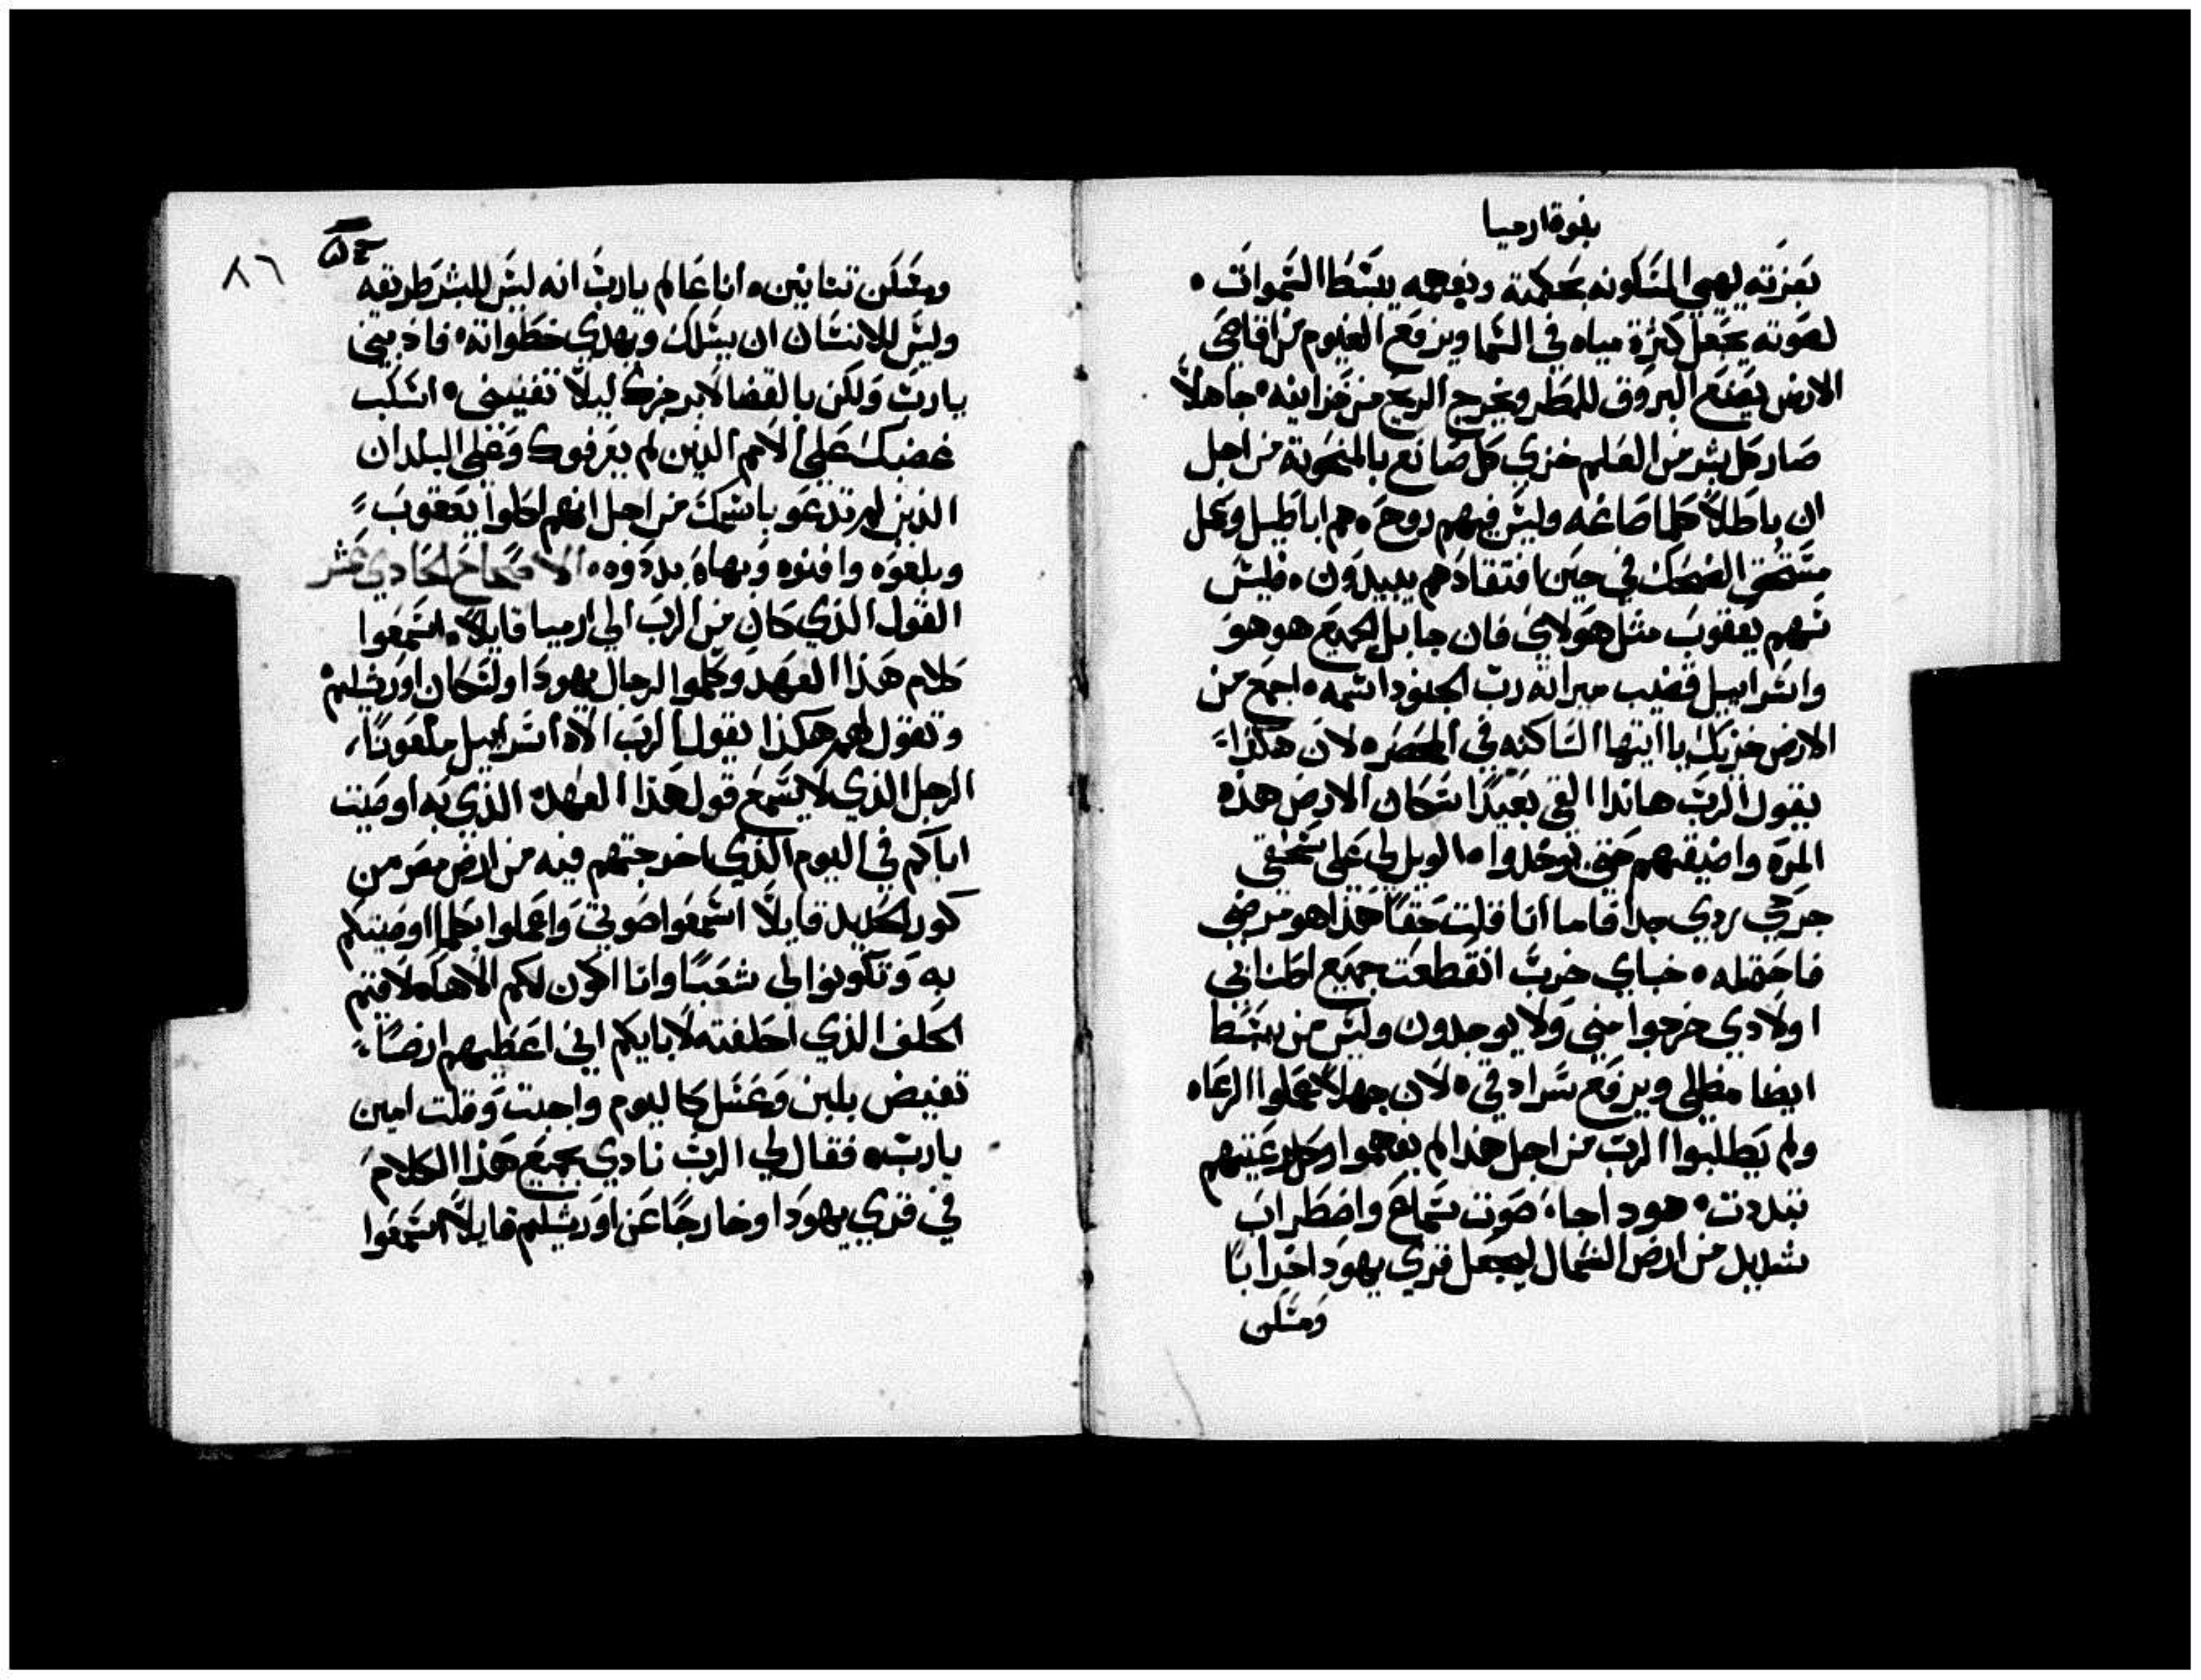 نبوة ارميا
بعزته يهيي المسكونه بحكمته وبفهمه يبسط السموات ٥
لصوته يجعل كثرة مياه في السما ويرفع الغيوم من اقاصي
الارض يصنع البروق للمطر ويخرج الريح من خزاينه ٥ جاهلاً
صار كل بشر من العلم خزي كل صانع بالمنحوتة من اجل
ان باطلاً كلما صاغه وليس فيهم روح ٥ هم اباطيل وعمل
مستحق الضحك في حين افتقادهم يبيدون ٥ فليس
سهم يعقوب مثل هولاي فان جابل الجميع هو هو
واسراييل قضيب ميراثه رب الجنود اسمه ٥ اجمع من
الارض خزيك يا ايتها الساكنه في الحصر ٥ لان هكذا
يقول الرب هانذا القي بعيدًا سكان الارض هذه
المره واضيقهم حتي يوخدوا ٥ الويل لي علي سحقي
جرحي ردي جدا فاما انا قلت حقًا هذا هو مرضي
فاحتمله ٥ خباي خرب انقطعت جميع اطنابي
اولادي خرجوا مني ولا يوجدون وليس من يبسط
ايضا مظلي ويرفع سرادقي ٥ لان جهلاً عملوا الرعاه
ولم يطلبوا الرب من اجل هذا لم يفهموا وكل رعيتهم
تبددت ٥ هودا جاء صوت سماع واضطراب
شديد من ارض الشمال ليجعل قري يهودا خرابًا
ومسكن
٨٦
ومسكن تنانين ٥ انا عالم يا رب انه ليس للبشر طريقه
وليس للانسان ان يسلك ويهدي خطواته ٥ فاذبني
يا رب ولكن بالقضا لا برجزك ليلا تفنيني ٥ اسكب
غضبك علي الامم الذين لم يعرفوك وعلي البلدان
الذين لم تدعو باسمك من اجل انهم اكلوا يعقوب
وبلعوه وافنوه وبهاه بددوه ٥ الاصحاح الحادي عشر
القول الذي كان من الرب الي ارميا قايلاً ٥ اسمعوا
كلام هذا العهد وكلموا الرجال يهودا ولسكان اورشليم
وتقول لهم هكذا يقول الرب الاه اسراييل ملعونًا
الرجل الذي لا يسمع قول هذا العهد ٥ الذي به اوصيت
اباكم في اليوم الذي اخرجتهم فيه من ارض مصر من
كور الحديد قايلاً اسمعوا صوتي واعملوا بكلما اوصيتكم
به وتكونوا لي شعبًا وانا اكون لكم الاهًا ٥ لاقيم
الحلف الذي احلفته لابايكم اني اعطيهم ارضًا
تفيض بلبن وعسل كاليوم واجبت وقلت امين
يا رب ٥ فقال لي الرب نادي بجميع هذا الكلام
في قري يهودا وخارجًا عن اورشليم قايلاً اسمعوا